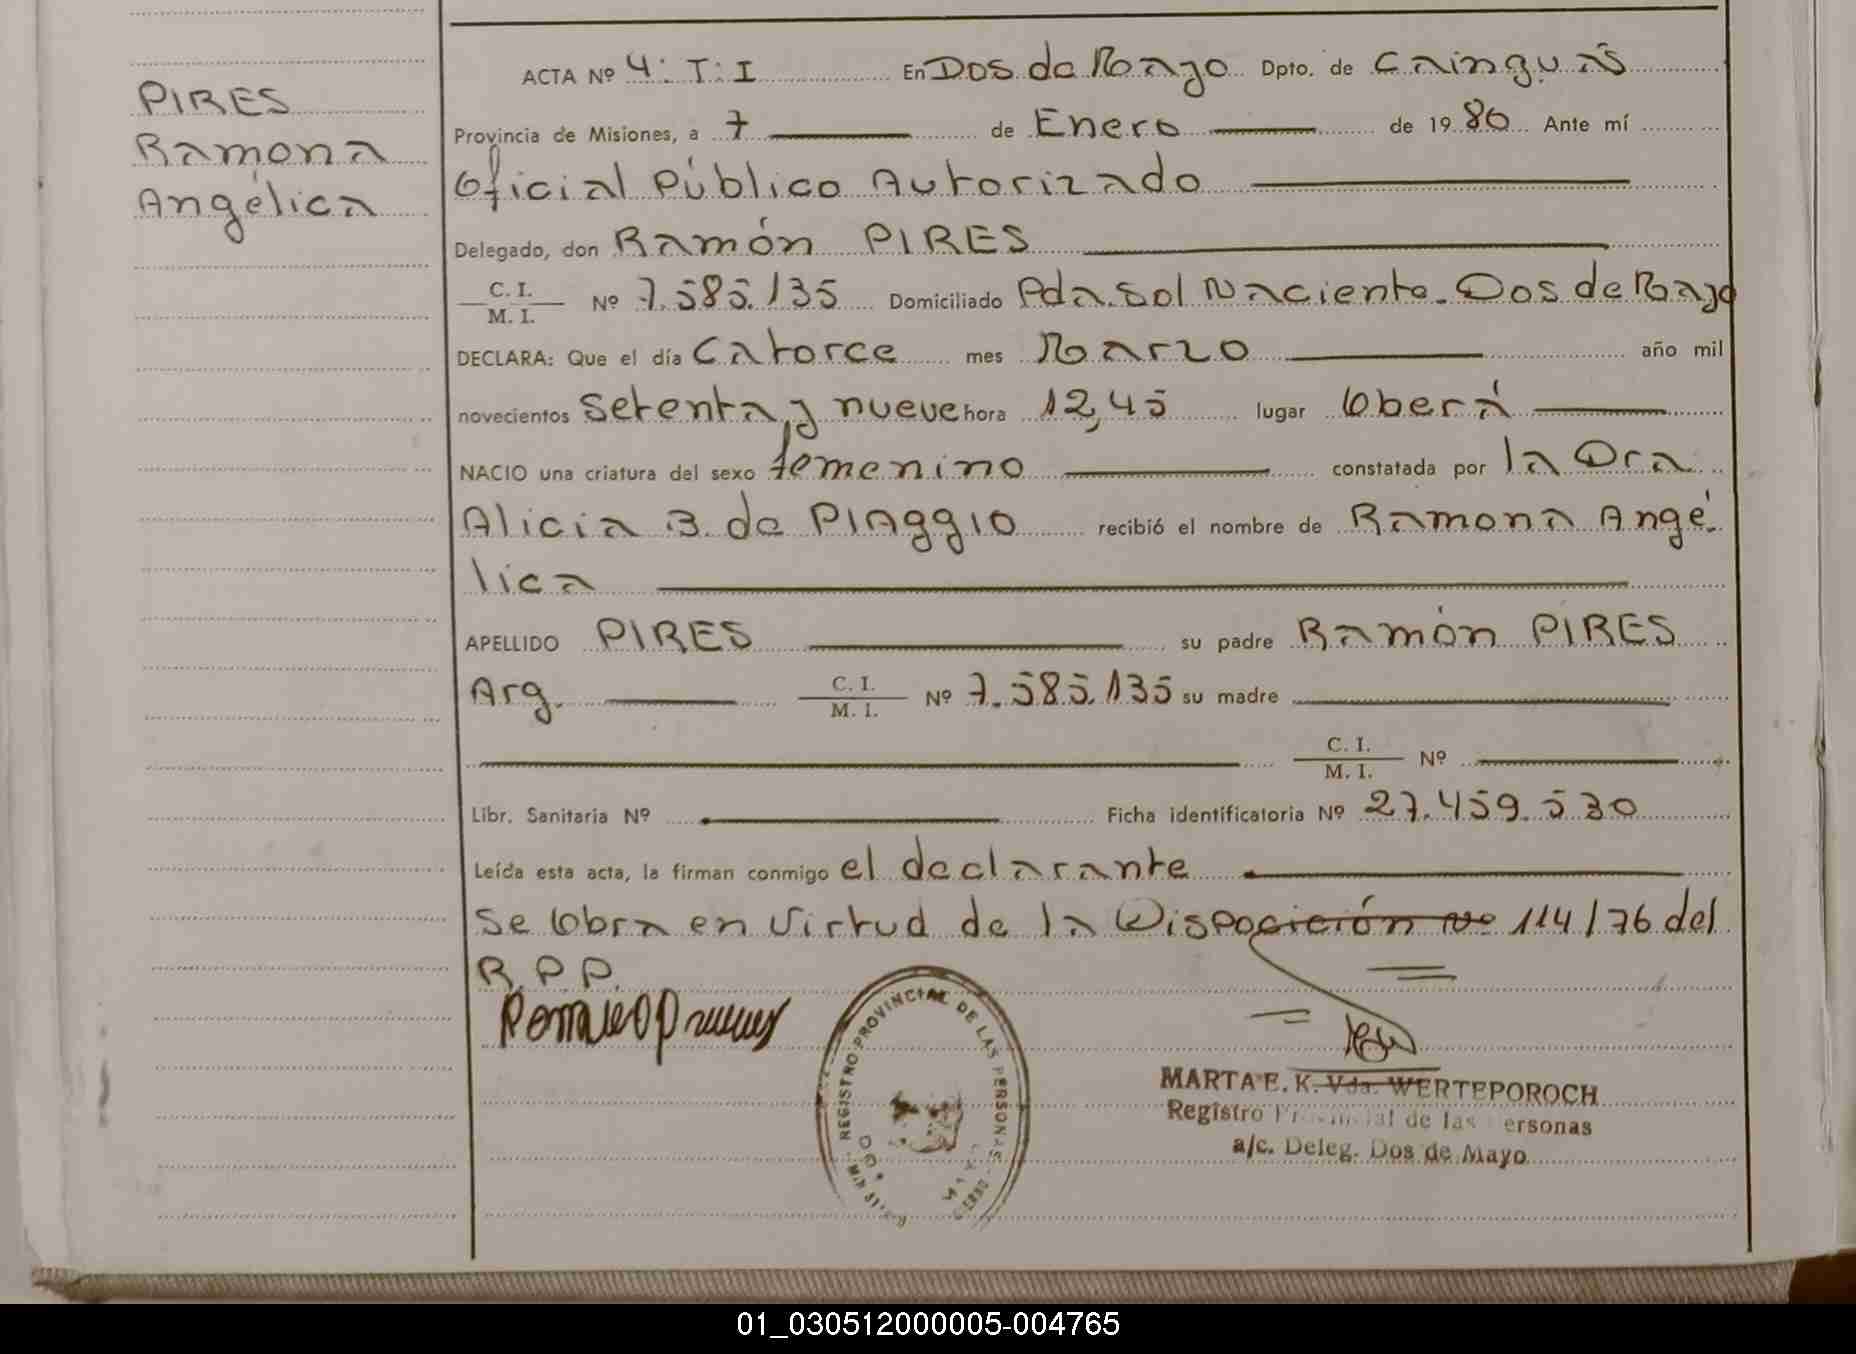 PIRES
Ramona
Angélica
ACTA Nº 4: T: I En Dos de Mayo Dpto. de Cainguás
Provincia de Misiones, a 7 de Enero de 1980 Ante mí
Oficial Público Autorizado
Delegado, don Ramón PIRES
C. I.
M. I. Nº 7.585.135 Domiciliado Pda. Sol Naciente. Dos de Mayo
DECLARA: Que el día Catorce mes Marzo año mil
novecientos Setenta y nueve hora 12,45 lugar Oberá
NACIO una criatura del sexo femenino constatada por la Dra
Alicia B. de PIAggIO recibió el nombre de Ramona Angé
lica
APELLIDO PIRES su padre Ramón PIRES
Arg. C. I.
M. I. Nº 7.585.135 su madre
C. I.
M. I. Nº
Libr. Sanitaria Nº Ficha identificatoria Nº 27.459.530
Leída esta acta, la firman conmigo el declarante
Se Obra en Virtud de la Disposición Nº 114/76 del
R.P.P.
REGISTRO PROVINCIAL DE LAS PERSONAS
MARTA E. K. Vda. WERTEPOROCH
Registro Provincial de las Personas
a/c. Deleg. Dos de Mayo
01_030512000005-004765